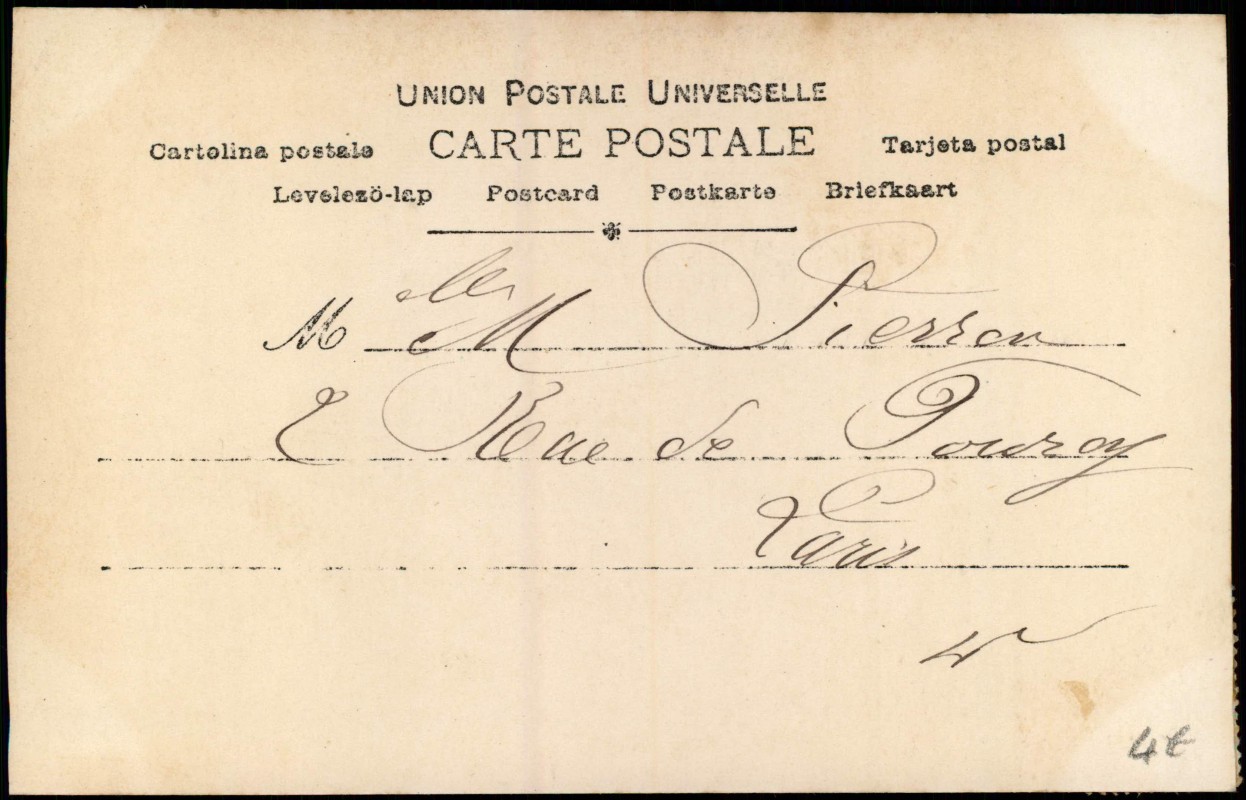 UNION POSTALE UNIVERSELLE
Cartolina postale CARTE POSTALE Tarjeta postal
Levelezö-lap Postcard Postkarte Briefkaart
M elle M Pierron
2 Rue de Tourcy
Paris
4€